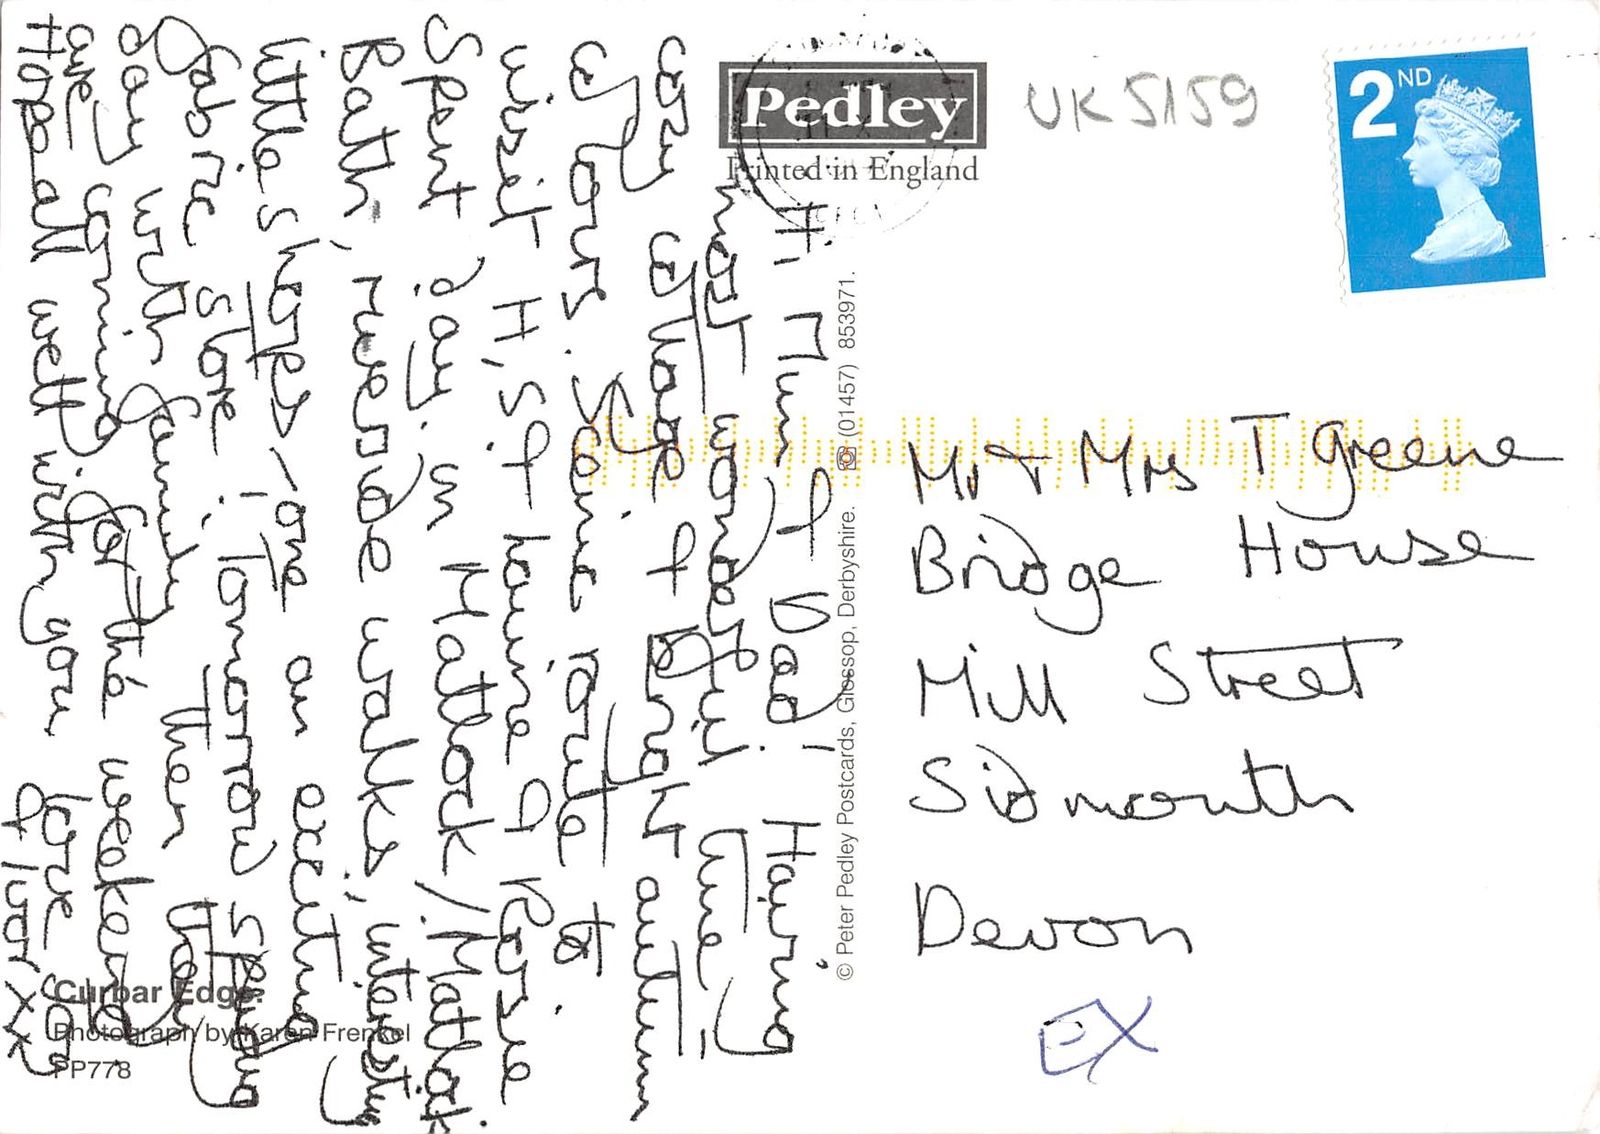 Pedley
Printed in England
UK 5159
2ND
Hi Mum & Dad! Having
most wonderful time in
cosy cottage & bright autumn
colours. Scenic route to
visit H, St & Rosie.
Spent day in Matlock/Matlock
Bath, riverside walks, interesting
little shops - one an exciting
fabric store! Tomorrow spending
day with family Then they
are coming for the weekend
Hope all well with you love Sally
& Ivor xx
© Peter Pedley Postcards, Glossop, Derbyshire. ☎ (01457) 853971.
Mr & Mrs T Greene
Bridge House
Mill Street
Sidmouth
Devon
EX
Curbar Edge.
Photograph by Karen Frenkel
PP778